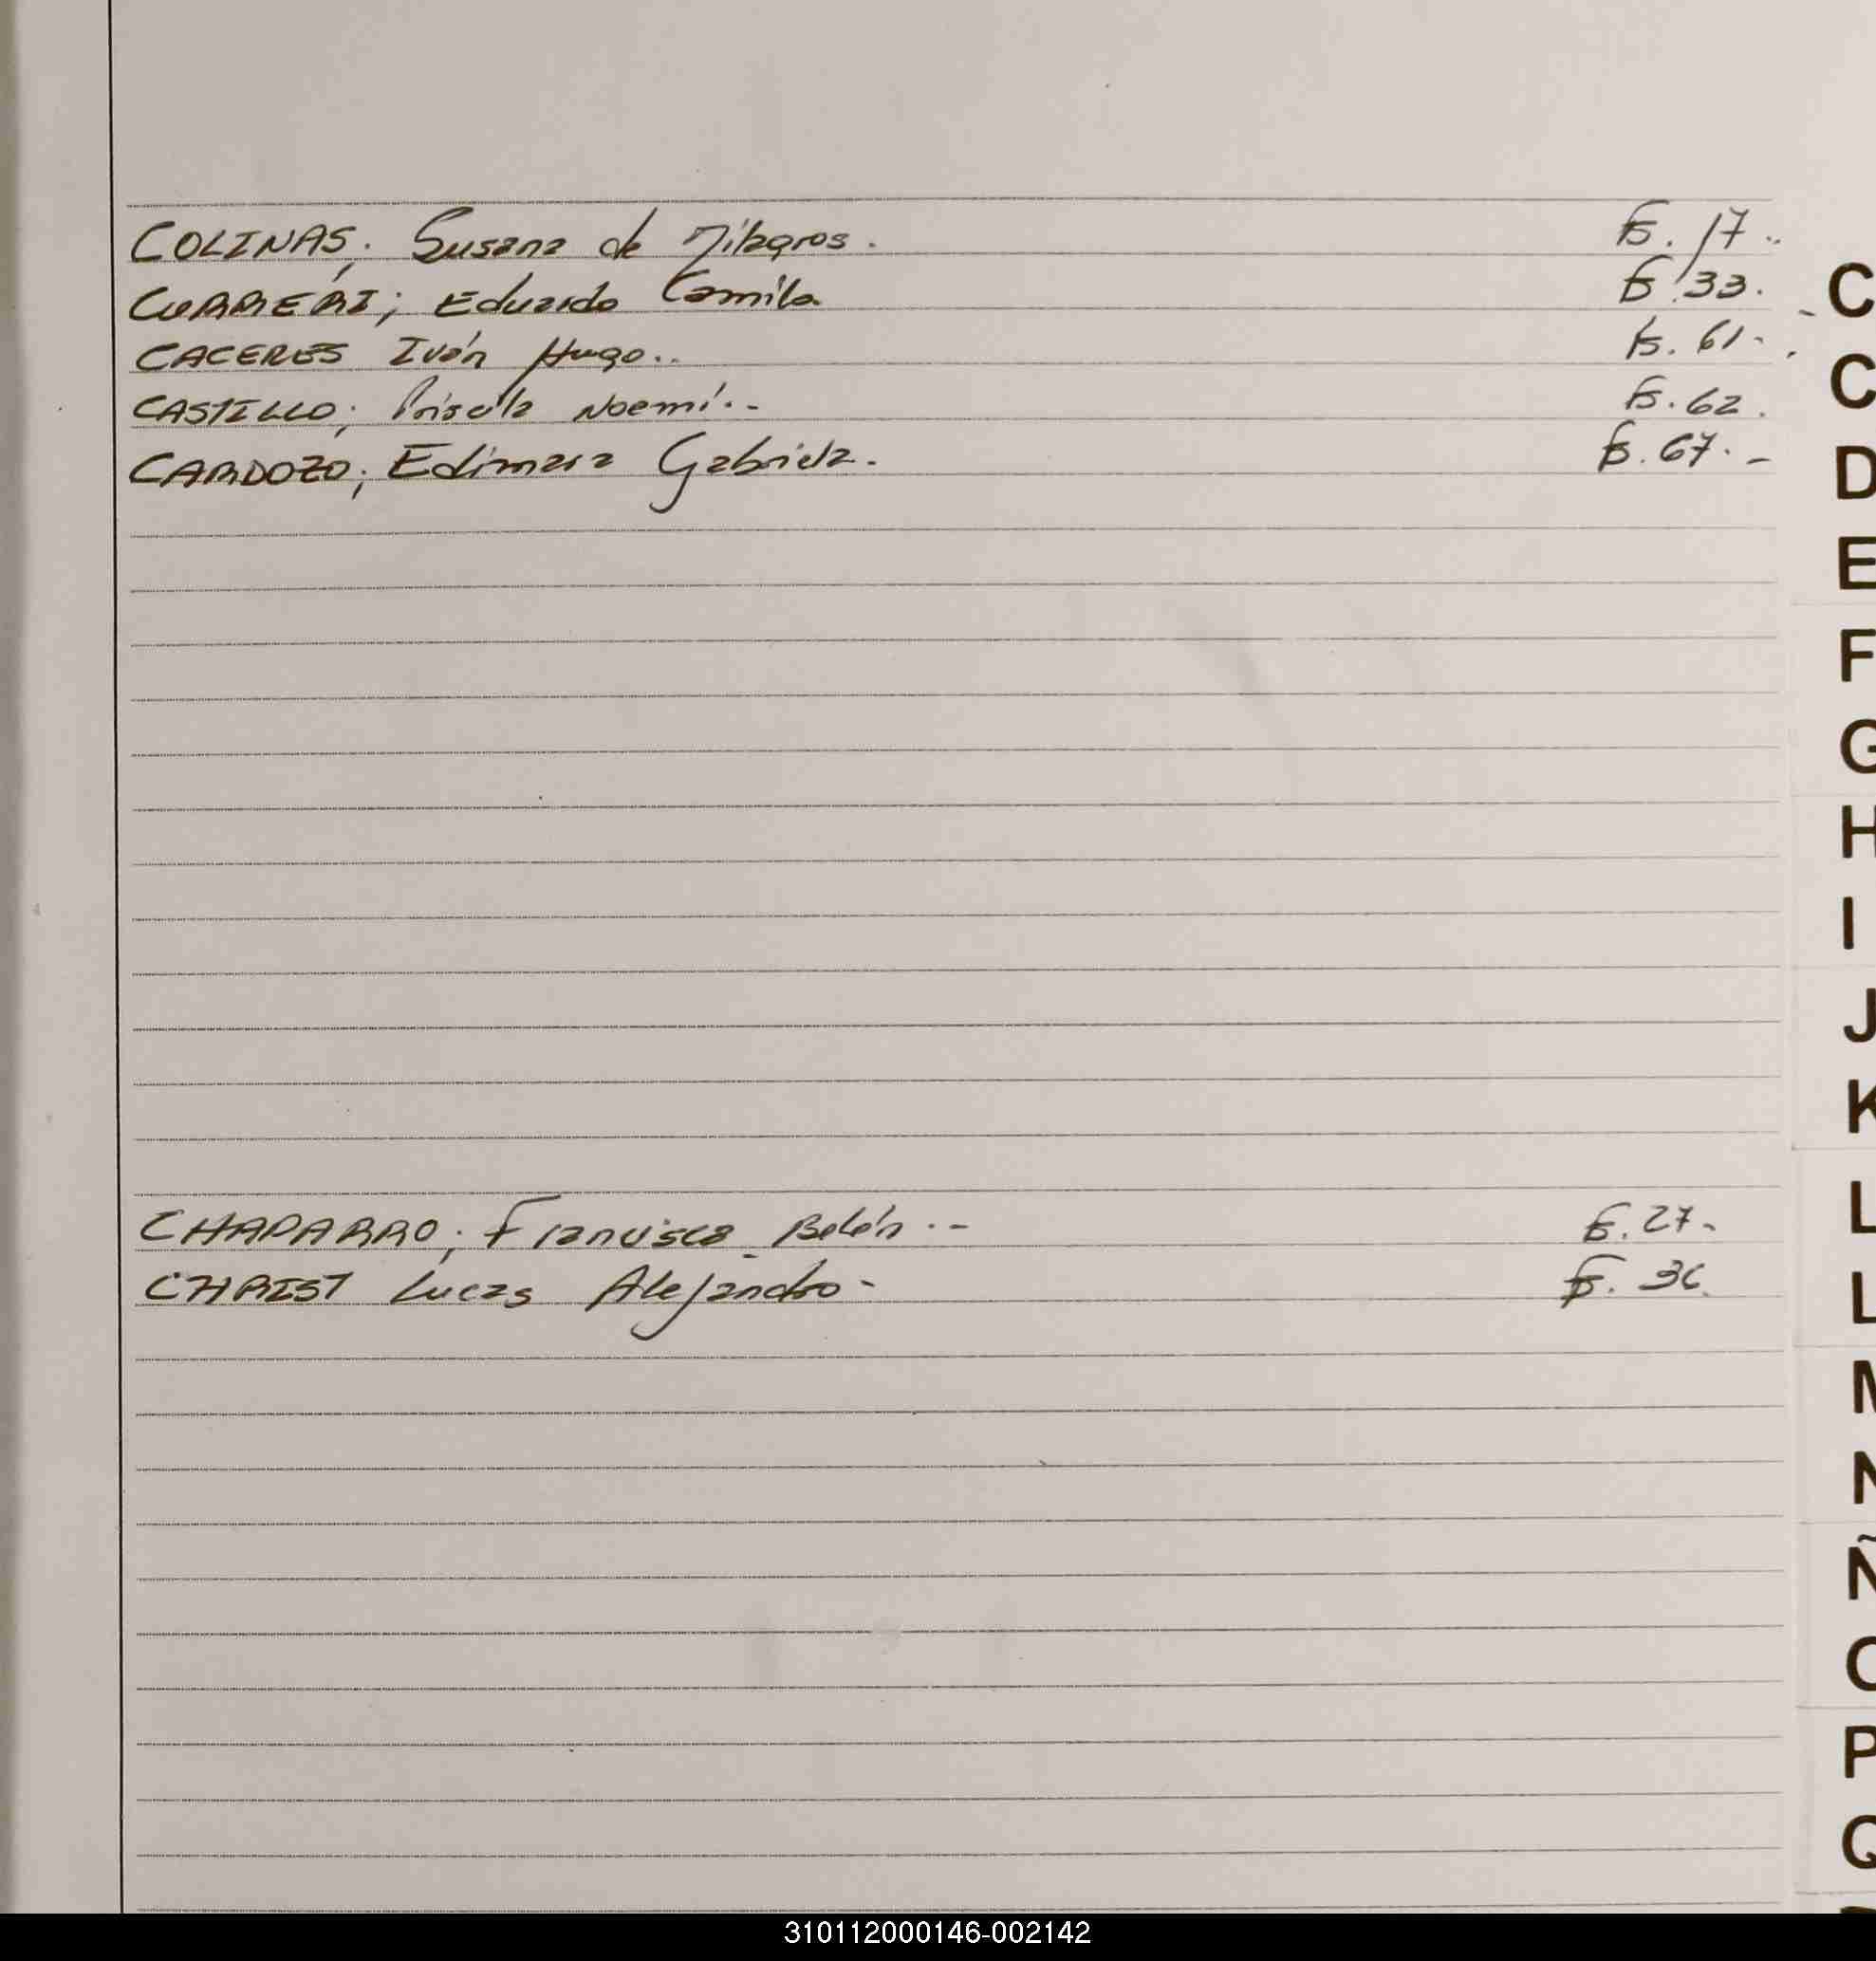 COLINAS; Susana de Milagros. Fs. 17..
CURRERI; Eduardo Camilo Fs. 33.
CACERES Iván Hugo.. Fs. 61-.
CASTILLO; Priscila Noemí.- Fs. 62.
CARDOZO; Edimara Gabriela. Fs. 67.-
CHAPARRO; Francisca Belén.- Fs. 27.
CHRIST Lucas Alejandro- Fs. 36.
C
C
D
E
F
G
H
I
J
K
L
L
M
N
Ñ
O
P
Q
310112000146-002142